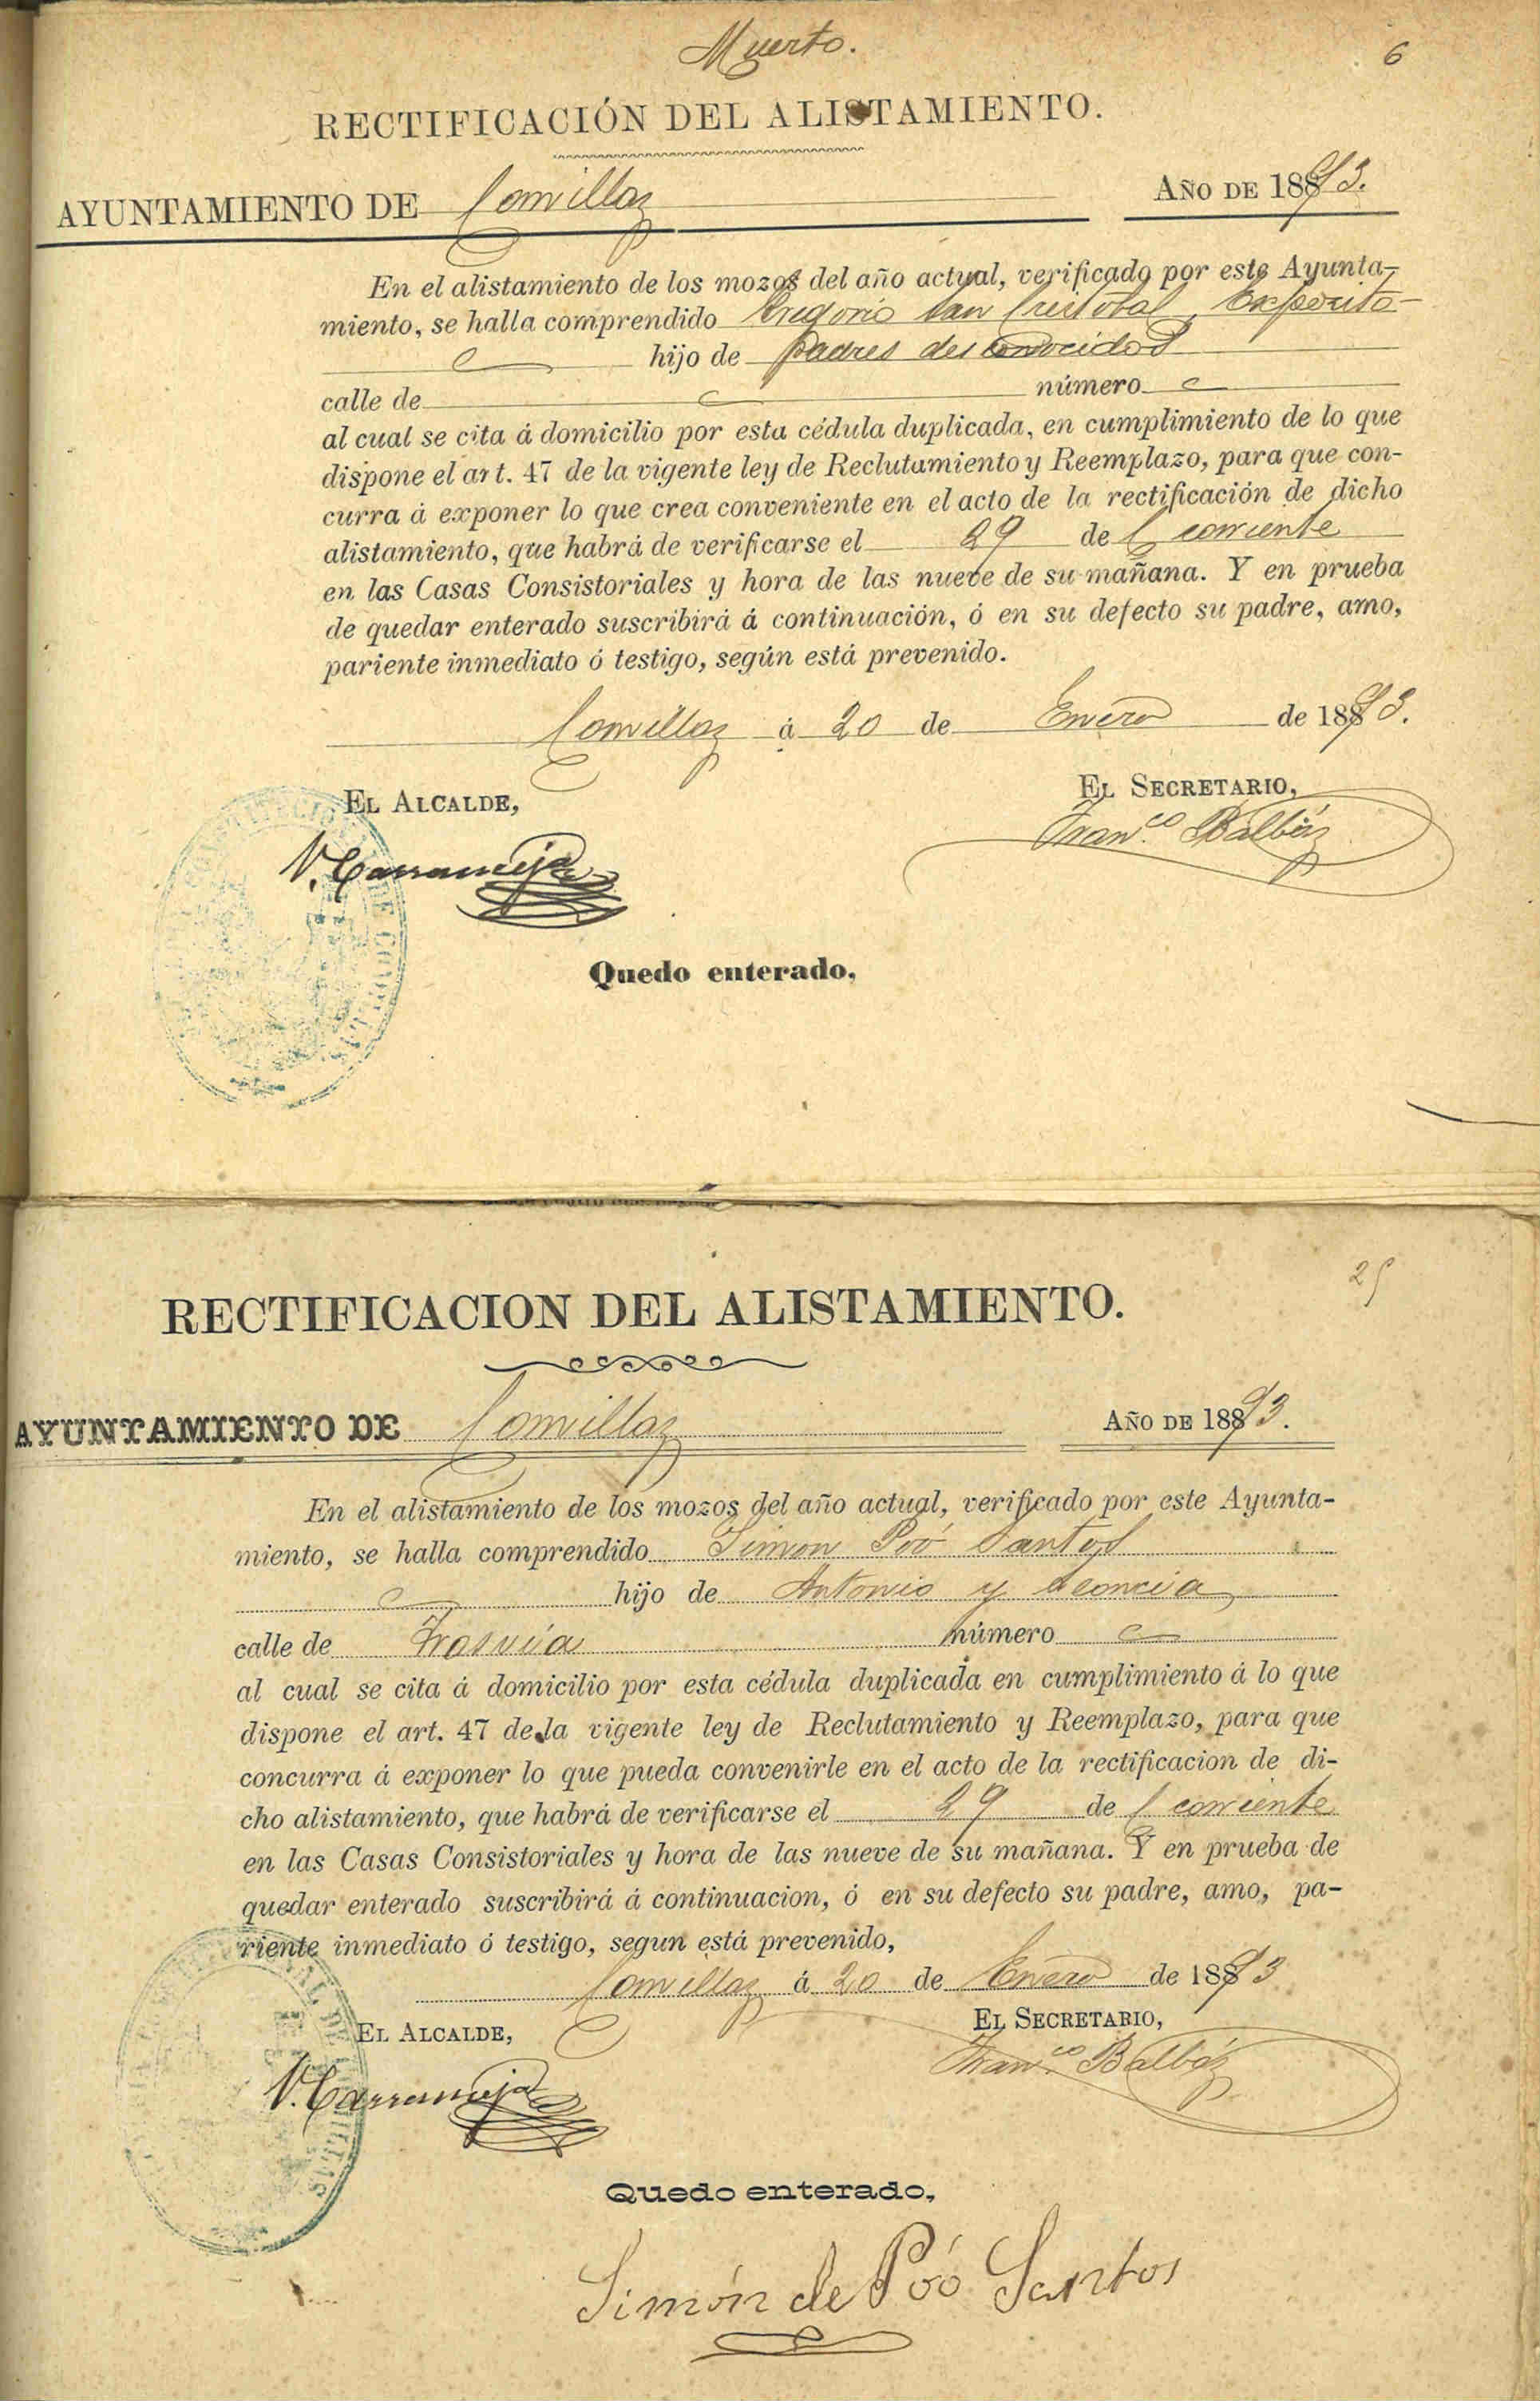 Muerto.
6
RECTIFICACIÓN DEL ALISTAMIENTO.
AYUNTAMIENTO DE Comillas AÑO DE 1893.
En el alistamiento de los mozos del año actual, verificado por este Ayunta-
miento, se halla comprendido Gregorio San Cristobal, Expósito
hijo de padres desconocidos
calle de número
al cual se cita á domicilio por esta cédula duplicada, en cumplimiento de lo que
dispone el art. 47 de la vigente ley de Reclutamiento y Reemplazo, para que con-
curra á exponer lo que crea conveniente en el acto de la rectificación de dicho
alistamiento, que habrá de verificarse el 29 del corriente
en las Casas Consistoriales y hora de las nueve de su mañana. Y en prueba
de quedar enterado suscribirá á continuación, ó en su defecto su padre, amo,
pariente inmediato ó testigo, según está prevenido.
Comillas á 20 de Enero de 1893.
EL ALCALDE, EL SECRETARIO,
Fran.co Balbás
Quedo enterado,
25
RECTIFICACION DEL ALISTAMIENTO.
AYUNTAMIENTO DE Comillas AÑO DE 1893.
En el alistamiento de los mozos del año actual, verificado por este Ayunta-
miento, se halla comprendido Simon Poó Santos
hijo de Antonio y Leoncia,
calle de Trasvia número
al cual se cita á domicilio por esta cédula duplicada en cumplimiento á lo que
dispone el art. 47 de la vigente ley de Reclutamiento y Reemplazo, para que
concurra á exponer lo que pueda convenirle en el acto de la rectificacion de di-
cho alistamiento, que habrá de verificarse el 29 del corriente
en las Casas Consistoriales y hora de las nueve de su mañana. Y en prueba de
quedar enterado suscribirá á continuacion, ó en su defecto su padre, amo, pa-
riente inmediato ó testigo, segun está prevenido,
Comillas á 20 de Enero de 1893
EL ALCALDE, EL SECRETARIO,
Fran.co Balbás
Quedo enterado,
Simón de Poó Santos